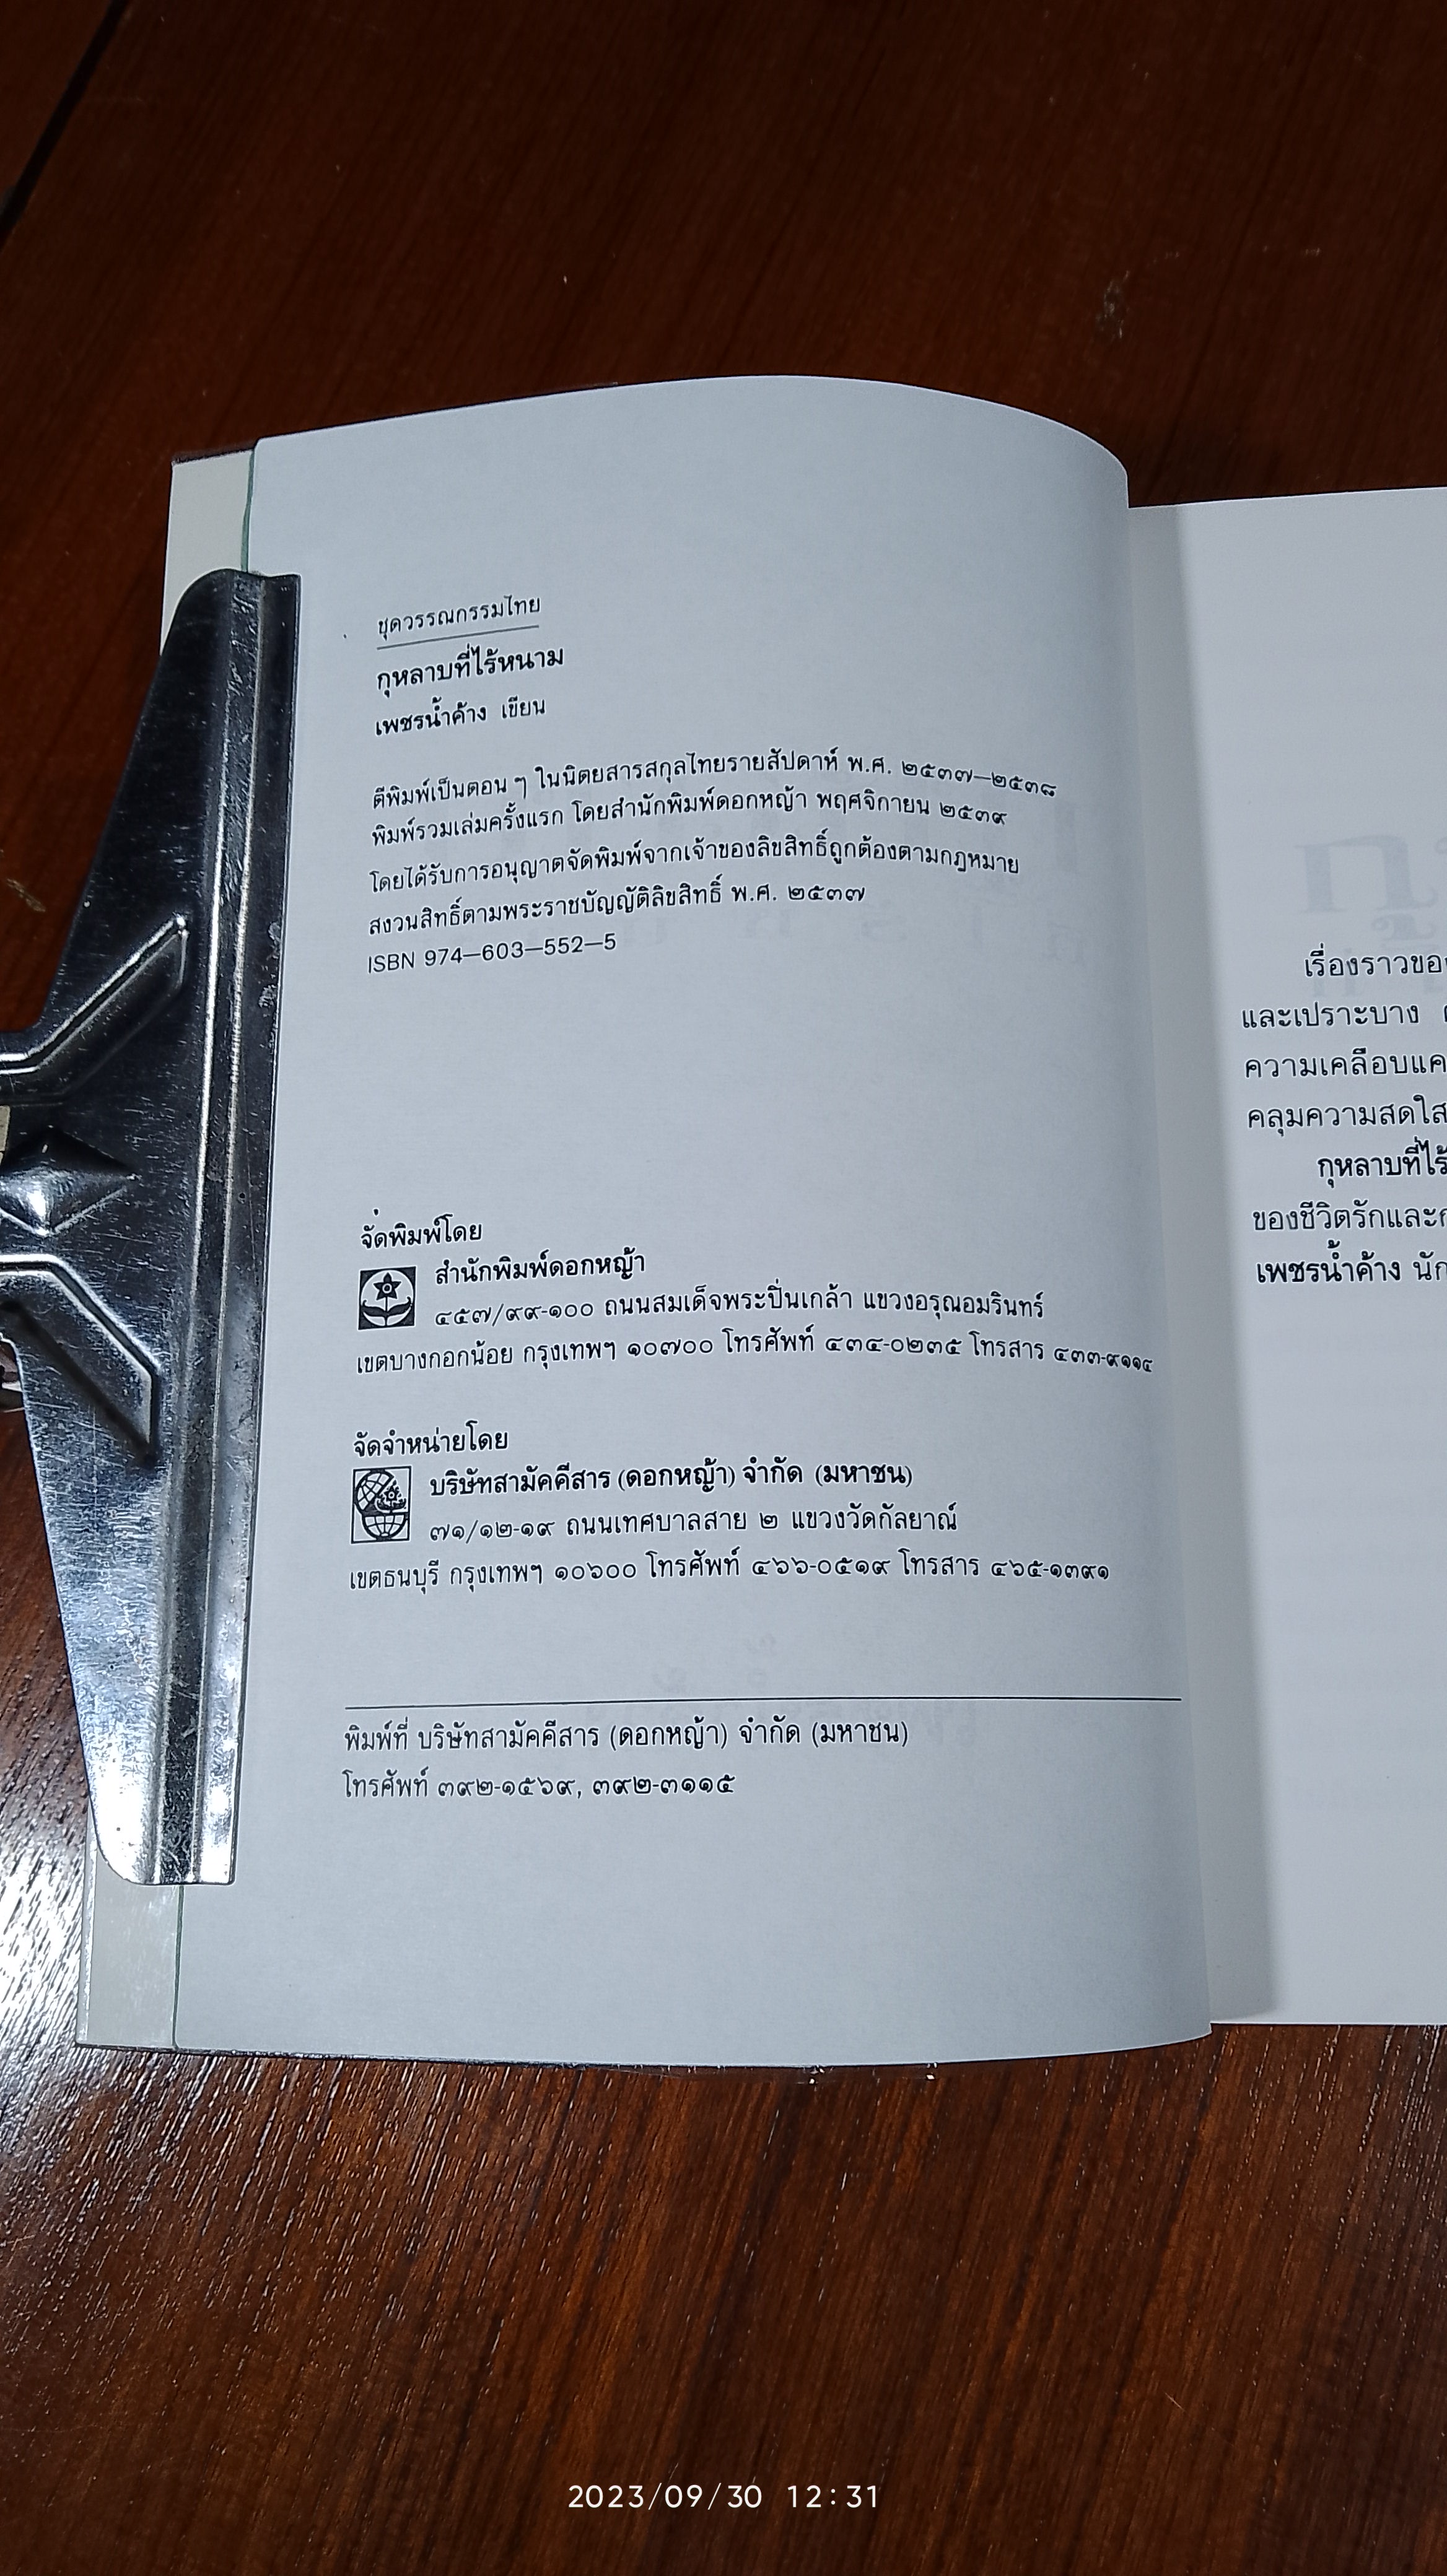 ชุดวรรณกรรมไทย
กุหลาบที่ไร้หนาม
เพชรน้ำค้าง เขียน
ตีพิมพ์เป็นตอน ๆ ในนิตยสารสกุลไทยรายสัปดาห์ พ.ศ. ๒๕๓๗—๒๕๓๘
พิมพ์รวมเล่มครั้งแรก โดยสำนักพิมพ์ดอกหญ้า พฤศจิกายน ๒๕๓๙
โดยได้รับการอนุญาตจัดพิมพ์จากเจ้าของลิขสิทธิ์ถูกต้องตามกฎหมาย
สงวนสิทธิ์ตามพระราชบัญญัติลิขสิทธิ์ พ.ศ. ๒๕๓๗
ISBN 974—603—552—5
จัดพิมพ์โดย
สำนักพิมพ์ดอกหญ้า
๔๕๗/๙๙-๑๐๐ ถนนสมเด็จพระปิ่นเกล้า แขวงอรุณอมรินทร์
เขตบางกอกน้อย กรุงเทพฯ ๑๐๗๐๐ โทรศัพท์ ๔๓๔-๐๒๓๕ โทรสาร ๔๓๓-๙๑๑๔
จัดจำหน่ายโดย
บริษัทสามัคคีสาร (ดอกหญ้า) จำกัด (มหาชน)
๗๑/๑๒-๑๙ ถนนเทศบาลสาย ๒ แขวงวัดกัลยาณ์
เขตธนบุรี กรุงเทพฯ ๑๐๖๐๐ โทรศัพท์ ๔๖๖-๐๕๑๙ โทรสาร ๔๖๕-๑๓๙๑
พิมพ์ที่ บริษัทสามัคคีสาร (ดอกหญ้า) จำกัด (มหาชน)
โทรศัพท์ ๓๙๒-๑๕๖๙, ๓๙๒-๓๑๑๕
เรื่องราวขอ
และเปราะบาง
ความเคลือบแค
คลุมความสดใส
กุหลาบที่ไร้
ของชีวิตรักและ
เพชรน้ำค้าง นัก
2023/09/30 12:31